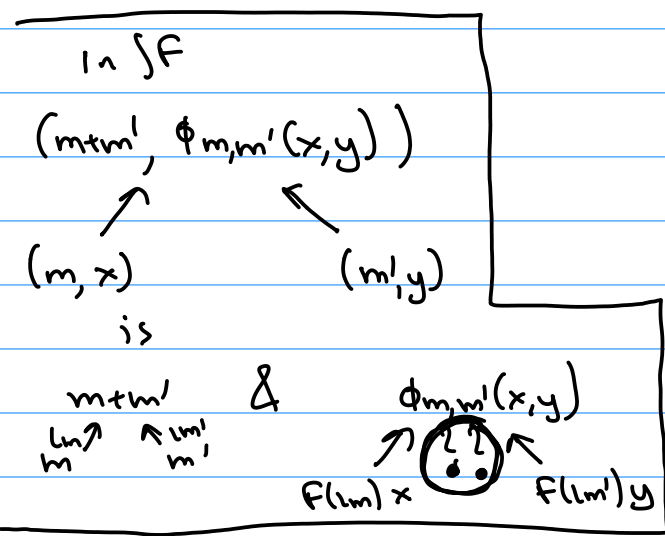 In ∫F
(m+m', ϕm,m'(x,y))
(m,x) (m',y)
is
m+m' & ϕm,m'(x,y)
ιm ιm' ? ?
m m'
F(ιm)x F(ιm')y